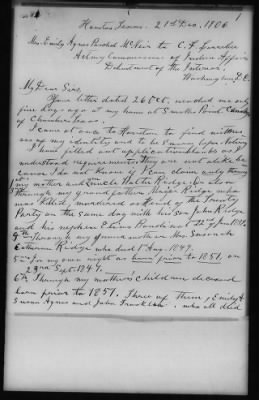 1
Houston Texas. 21st Dec. 1906
Mrs. Emily Agnes Paschal McNeir to C. F. Larrabee
Acting Commissioner of Indian Affairs
Department of the Interior,
Washington D.C.
My Dear Sir:
Your letter dated 26 Oct. reached me only
five days ago at my home at Smiths Point
of Chambers Texas.
I came at once to Houston to find witness
as of my identity and to
I have filled out application blanks as I
understood requirements. They are not alike be
cause I do not know if I can claim only through
my mother and Uncle Walter Ridge, or also
through my grand father, Major Ridge who
was killed, murdered as Head of the Treaty
Party on the same day with his son John Ridge
and his nephew Elias Boudinot 22nd of June 1839.
4th Through my grand mother Mrs. Susanah
Catharine Ridge who died 1 Aug. 1849.
5th In my own right as born prior to 1851. on
23rd Sept. 1847.
6th Through my mother's children deceased
born prior to 1851. Three of them; Emily A
Susan Agnes and John Franklin. who all died